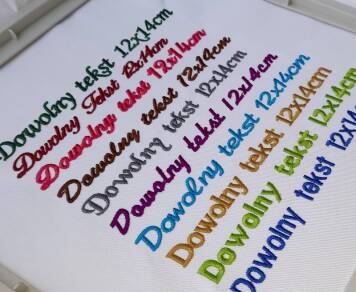 Dowolny tekst 12x14cm
Dowolny Tekst 12x14cm
Dowolny tekst 12x14cm
Dowolny tekst 12x14cm
Dowolny tekst 12x14cm
Dowolny tekst 12x14cm
Dowolny tekst 12x14cm
Dowolny tekst 12x14cm
Dowolny tekst 12x14cm
Dowolny tekst 12x14